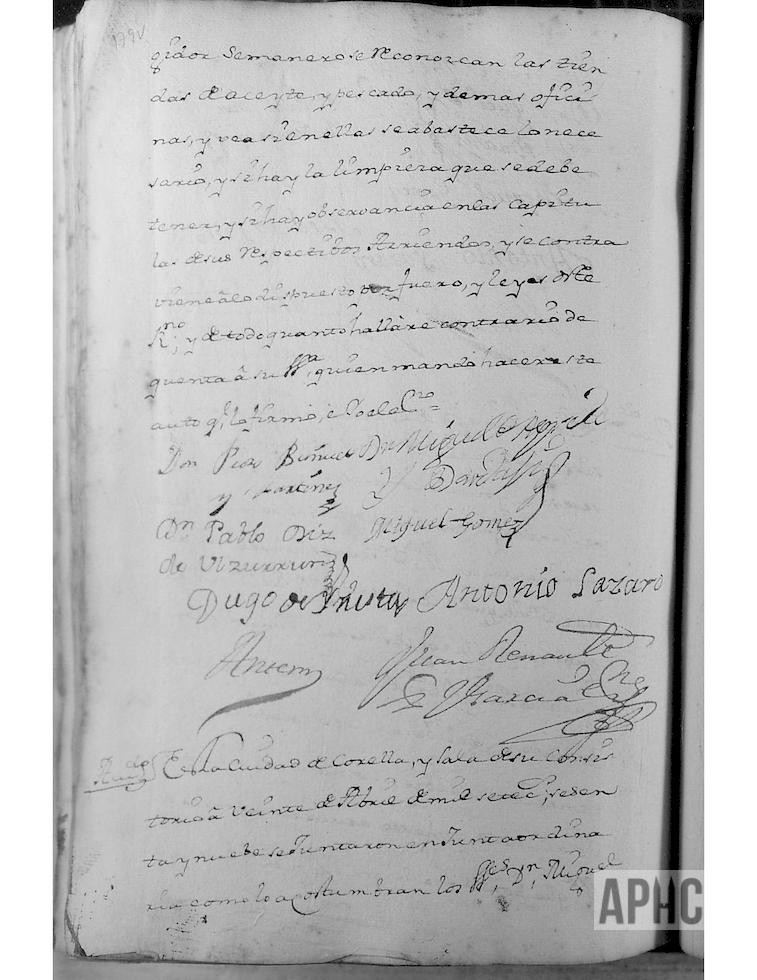 179v
gidor Semanero se reconozcan las tien
das de aceyte, y pescado, y demas ofici
nas, y vea si en ellas se abastece lo nece
sario, y si hay la limpieza que se debe
tener, y si hay observancia en las capitu
las de sus respectibos Arriendos, y se contra
viene à lo dispuesto por fuero, y leyes de este
R.no, y de todo quanto hallàre contrario de
quenta â su SSa, quien mandó hacer este
auto q, lo firmó, è Yo el Es.no =
Don Miguel de
y
Dn Pablo Diz Miguel Gomez
de Vlzurrun
Antonio Lazaro
Antemi Juan Renault
y Garcia Es.no
En la Ciudad de Corella, y Sala de su Consis
torio à veinte de Abril de mil setec.s sesen
ta y nuebe se Juntaron en Junta ordina
ria como lo acostumbran los SS.es Dn, Miguel
APHC